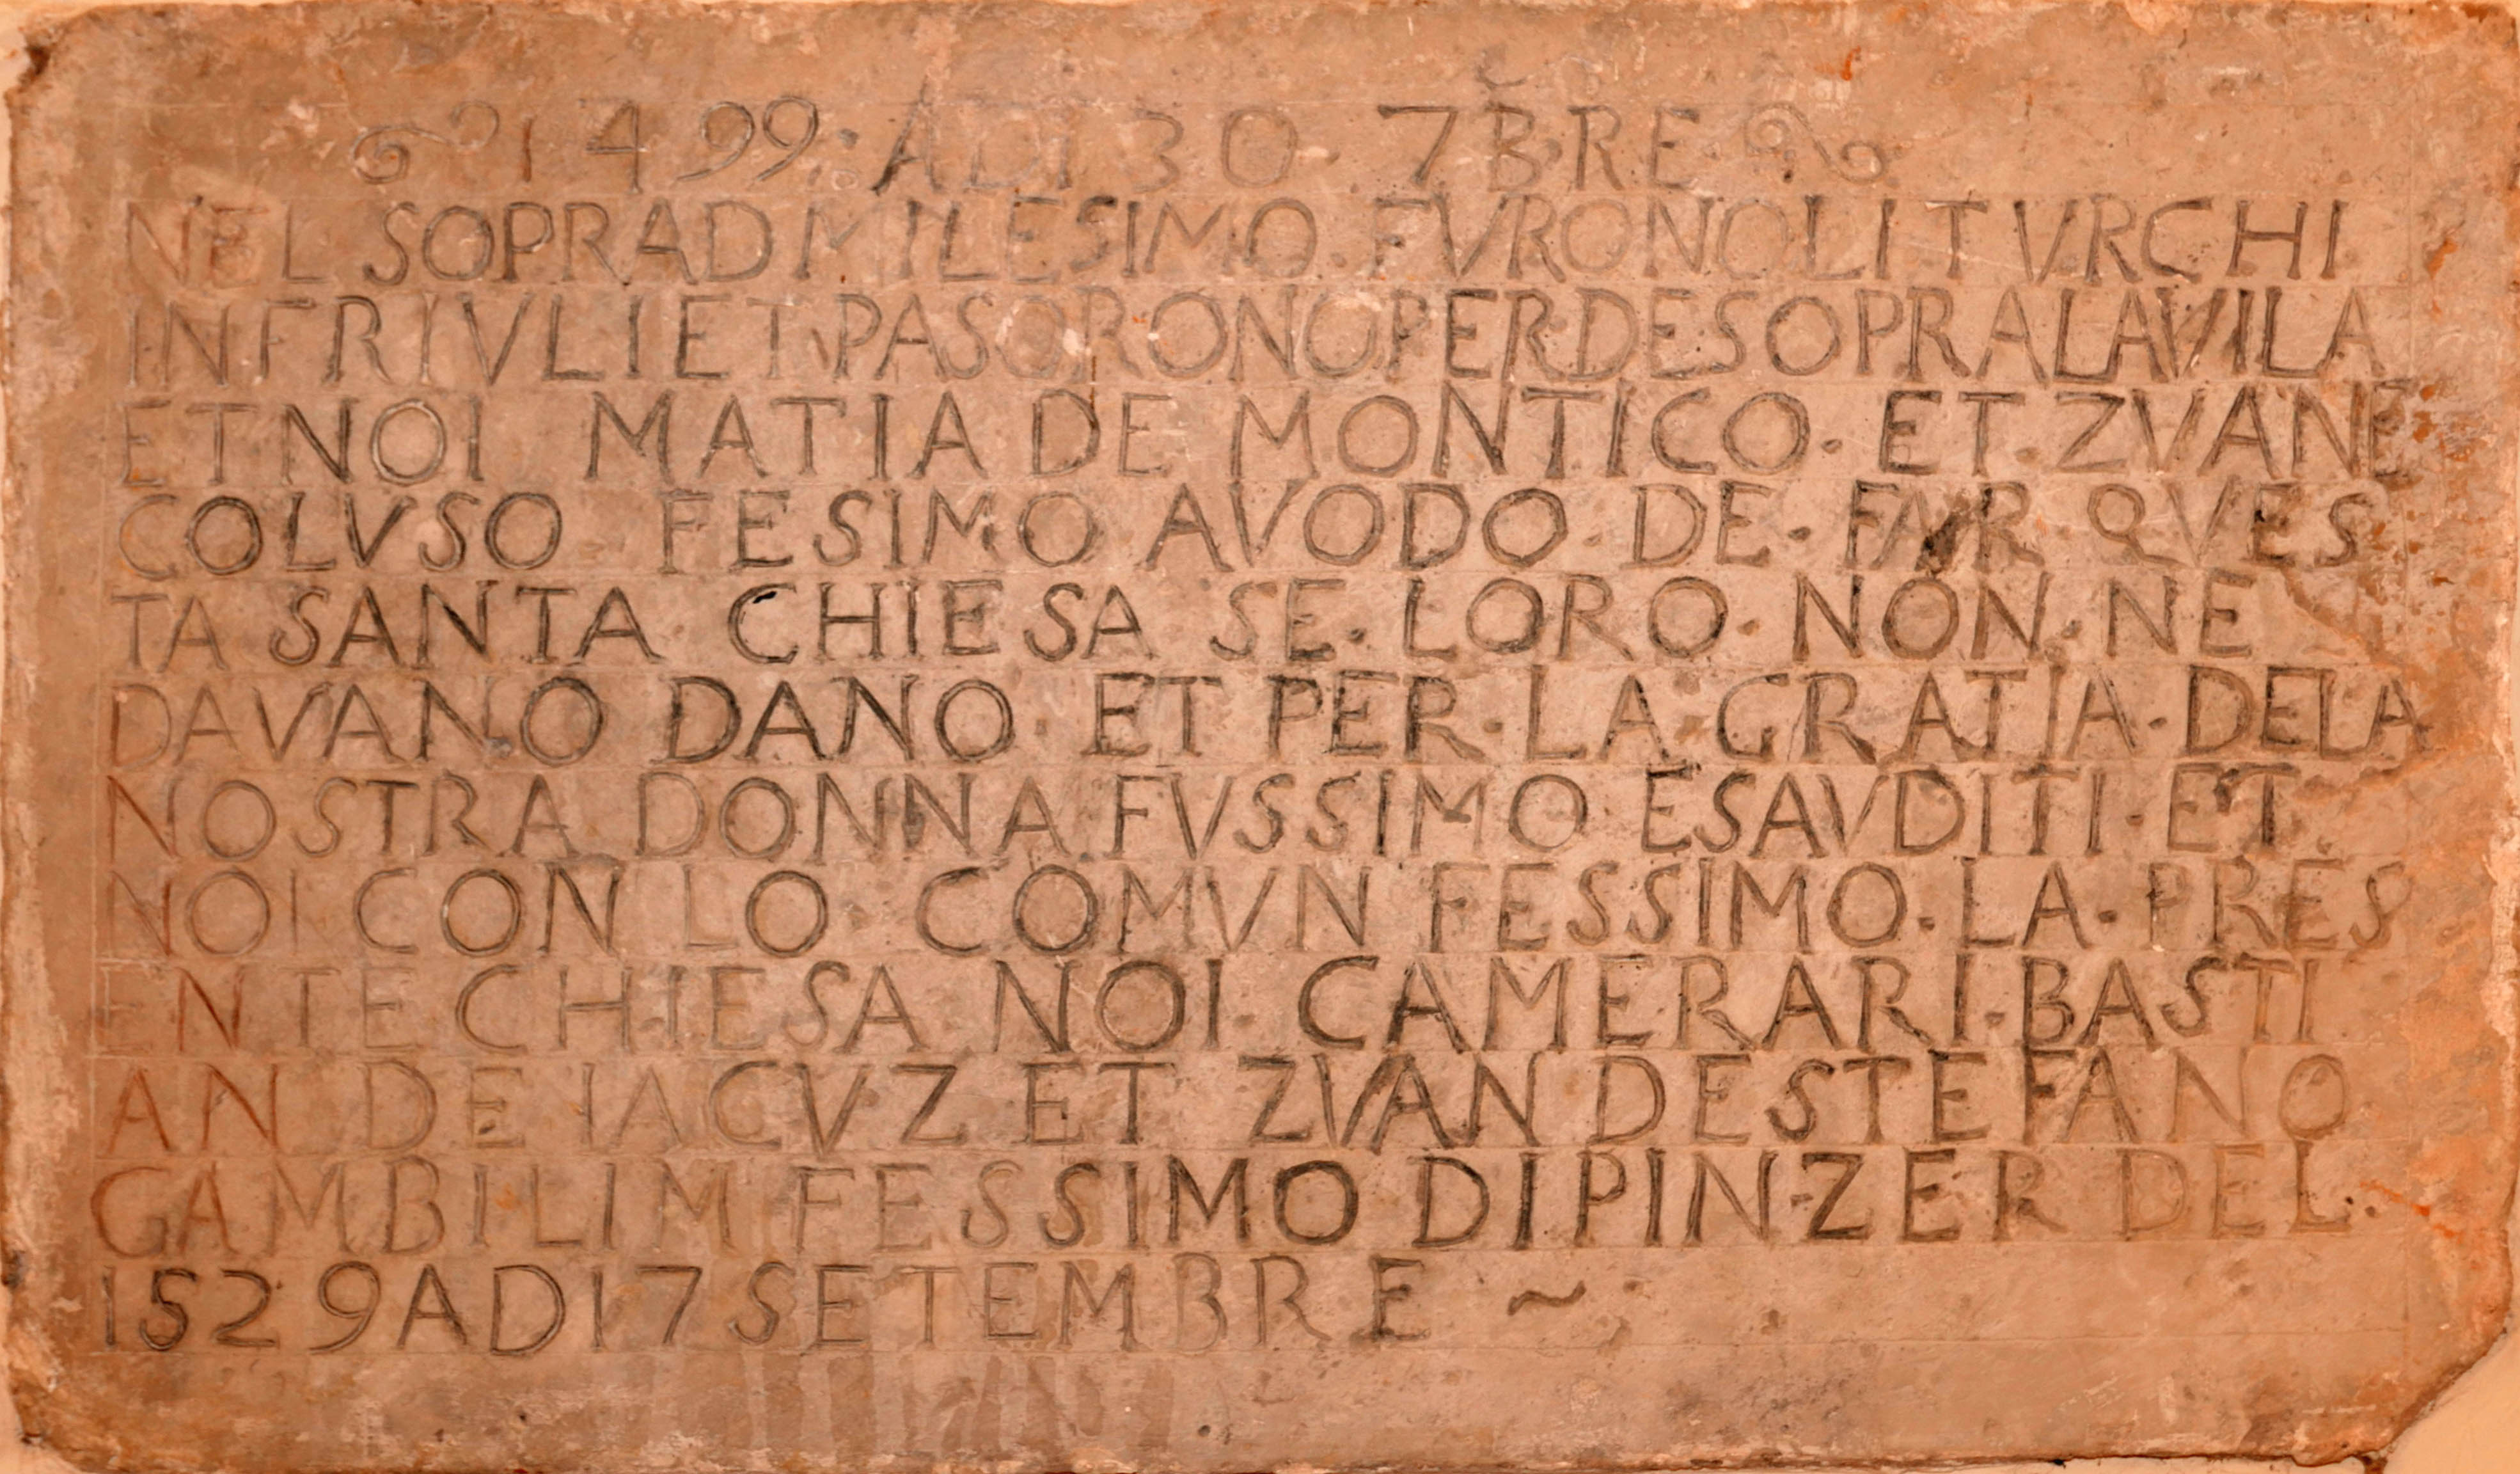 1499: ADI 30 7BRE
NEL SOPRAD MILESIMO. FVRONO LI TVRCHI
IN FRIVLI ET PASORONO PER DE SOPRA LA VILA
ET NOI MATIA DE MONTICO. ET. ZVANE
COLVSO FESIMO AVODO. DE. FAR QVES
TA SANTA CHIESA SE. LORO. NON. NE
DAVANO DANO. ET PER. LA. GRATIA. DELA
NOSTRA DONNA FVSSIMO ESAVDITI. ET
NOI CON LO COMVN FESSIMO. LA. PRES
ENTE CHIESA NOI CAMERARI. BASTI
AN DE IACVZ ET ZVAN DE STEFANO
GAMBILIM FESSIMO DIPINZER DEL.
1529 AD 17 SETEMBRE ~